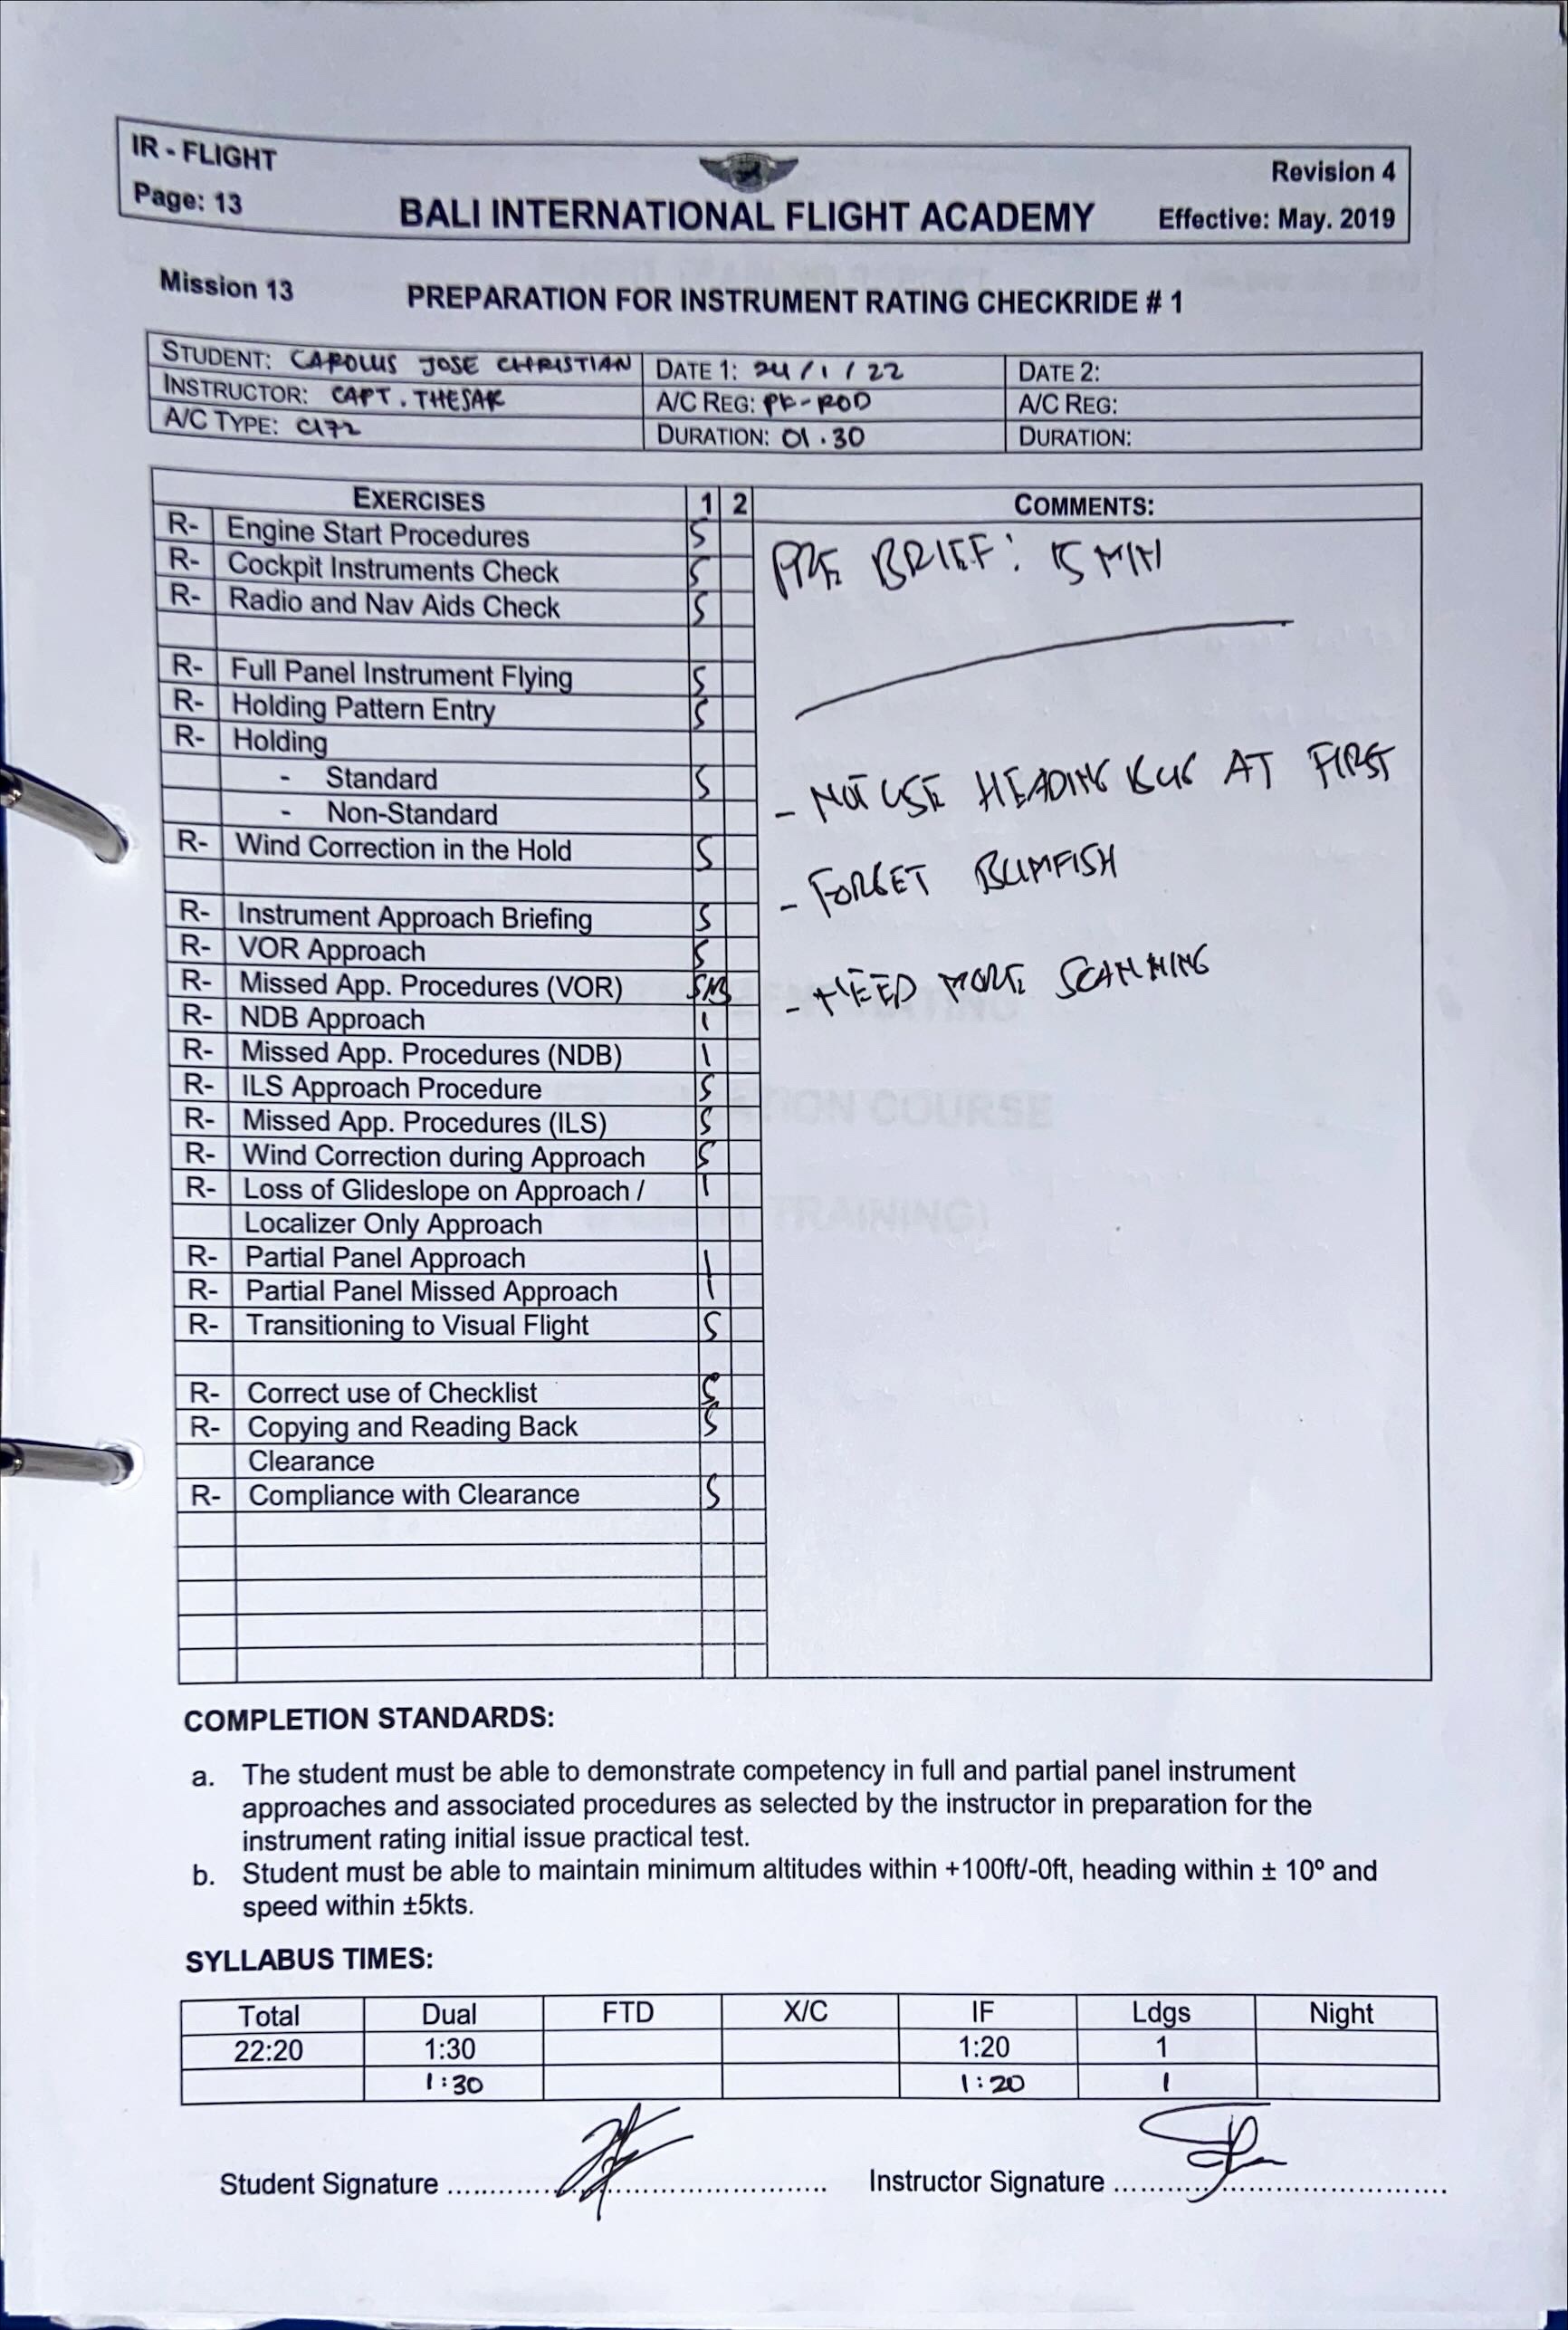 IR - FLIGHT
Page: 13
BALI INTERNATIONAL FLIGHT ACADEMY
Revision 4
Effective: May. 2019
Mission 13
PREPARATION FOR INSTRUMENT RATING CHECKRIDE # 1
STUDENT: CAROLUS JOSE CHRISTIAN DATE 1: 24 / 1 / 22 DATE 2:
INSTRUCTOR: CAPT. THESAR A/C REG: PK-ROD A/C REG:
A/C TYPE: C172 DURATION: 01.30 DURATION:
EXERCISES 1 2
R- Engine Start Procedures S
R- Cockpit Instruments Check S
R- Radio and Nav Aids Check S
R- Full Panel Instrument Flying S
R- Holding Pattern Entry S
R- Holding
- Standard S
- Non-Standard
R- Wind Correction in the Hold S
R- Instrument Approach Briefing S
R- VOR Approach S
R- Missed App. Procedures (VOR)
R- NDB Approach I
R- Missed App. Procedures (NDB) \
R- ILS Approach Procedure S
R- Missed App. Procedures (ILS) S
R- Wind Correction during Approach S
R- Loss of Glideslope on Approach / I
Localizer Only Approach
R- Partial Panel Approach \
R- Partial Panel Missed Approach I
R- Transitioning to Visual Flight S
R- Correct use of Checklist S
R- Copying and Reading Back S
Clearance
R- Compliance with Clearance S
COMMENTS:
PRE BRIEF: 15 MIN
- NOT USE HEADING BUG AT FIRST
- FORGET BUMFISH
- NEED MORE SCANNING
COMPLETION STANDARDS:
a. The student must be able to demonstrate competency in full and partial panel instrument
approaches and associated procedures as selected by the instructor in preparation for the
instrument rating initial issue practical test.
b. Student must be able to maintain minimum altitudes within +100ft/-0ft, heading within ± 10º and
speed within ±5kts.
SYLLABUS TIMES:
Total Dual FTD X/C IF Ldgs Night
22:20 1:30 1:20 1
1:30 1:20 1
Student Signature .......... Instructor Signature ..........